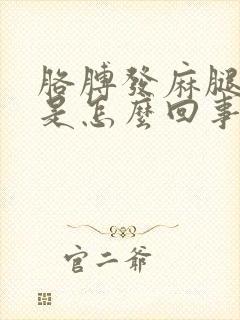 胳膊發麻腿
是怎麼回事
官二爺